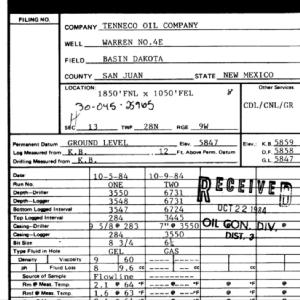 FILING NO.
COMPANY TENNECO OIL COMPANY
WELL WARREN NO.4E
FIELD BASIN DAKOTA
COUNTY SAN JUAN STATE NEW MEXICO
LOCATION: Other Services
1850'FNL x 1050'FEL
30-045-25965
CDL/CNL/GR
SEC 13 TWP 28N RGE 9W
Permanent Datum GROUND LEVEL Elev. 5847 Elev.: K.B. 5859
Log Measured from K.B. 12 Ft. Above Perm. Datum D.F. 5858
Drilling Measured from K.B. G.L. 5847
Date 10-5-84 10-9-84
Run No. ONE TWO
Depth-Driller 3550 6731
Depth-Logger 3548 6731
Bottom Logged Interval 3547 6724
Top Logged Interval 284 3445
Casing-Driller 9 5/8 @ 283 7" @ 3550
Casing-Logger 284 3550
Bit Size 8 3/4 6¼
Type Fluid in Hole GEL GAS
Density Viscosity 9 60
pH Fluid Loss 8 9.6 cc cc cc
Source of Sample Flowline
Rm @ Meas. Temp. 2.1 @ 64 °F @ °F @ °F
Rmf @ Meas. Temp. 1.6 @ 63 °F @ °F @ °F
RECEIVED
OCT 22 1984
OIL CON. DIV.
DIST. 3